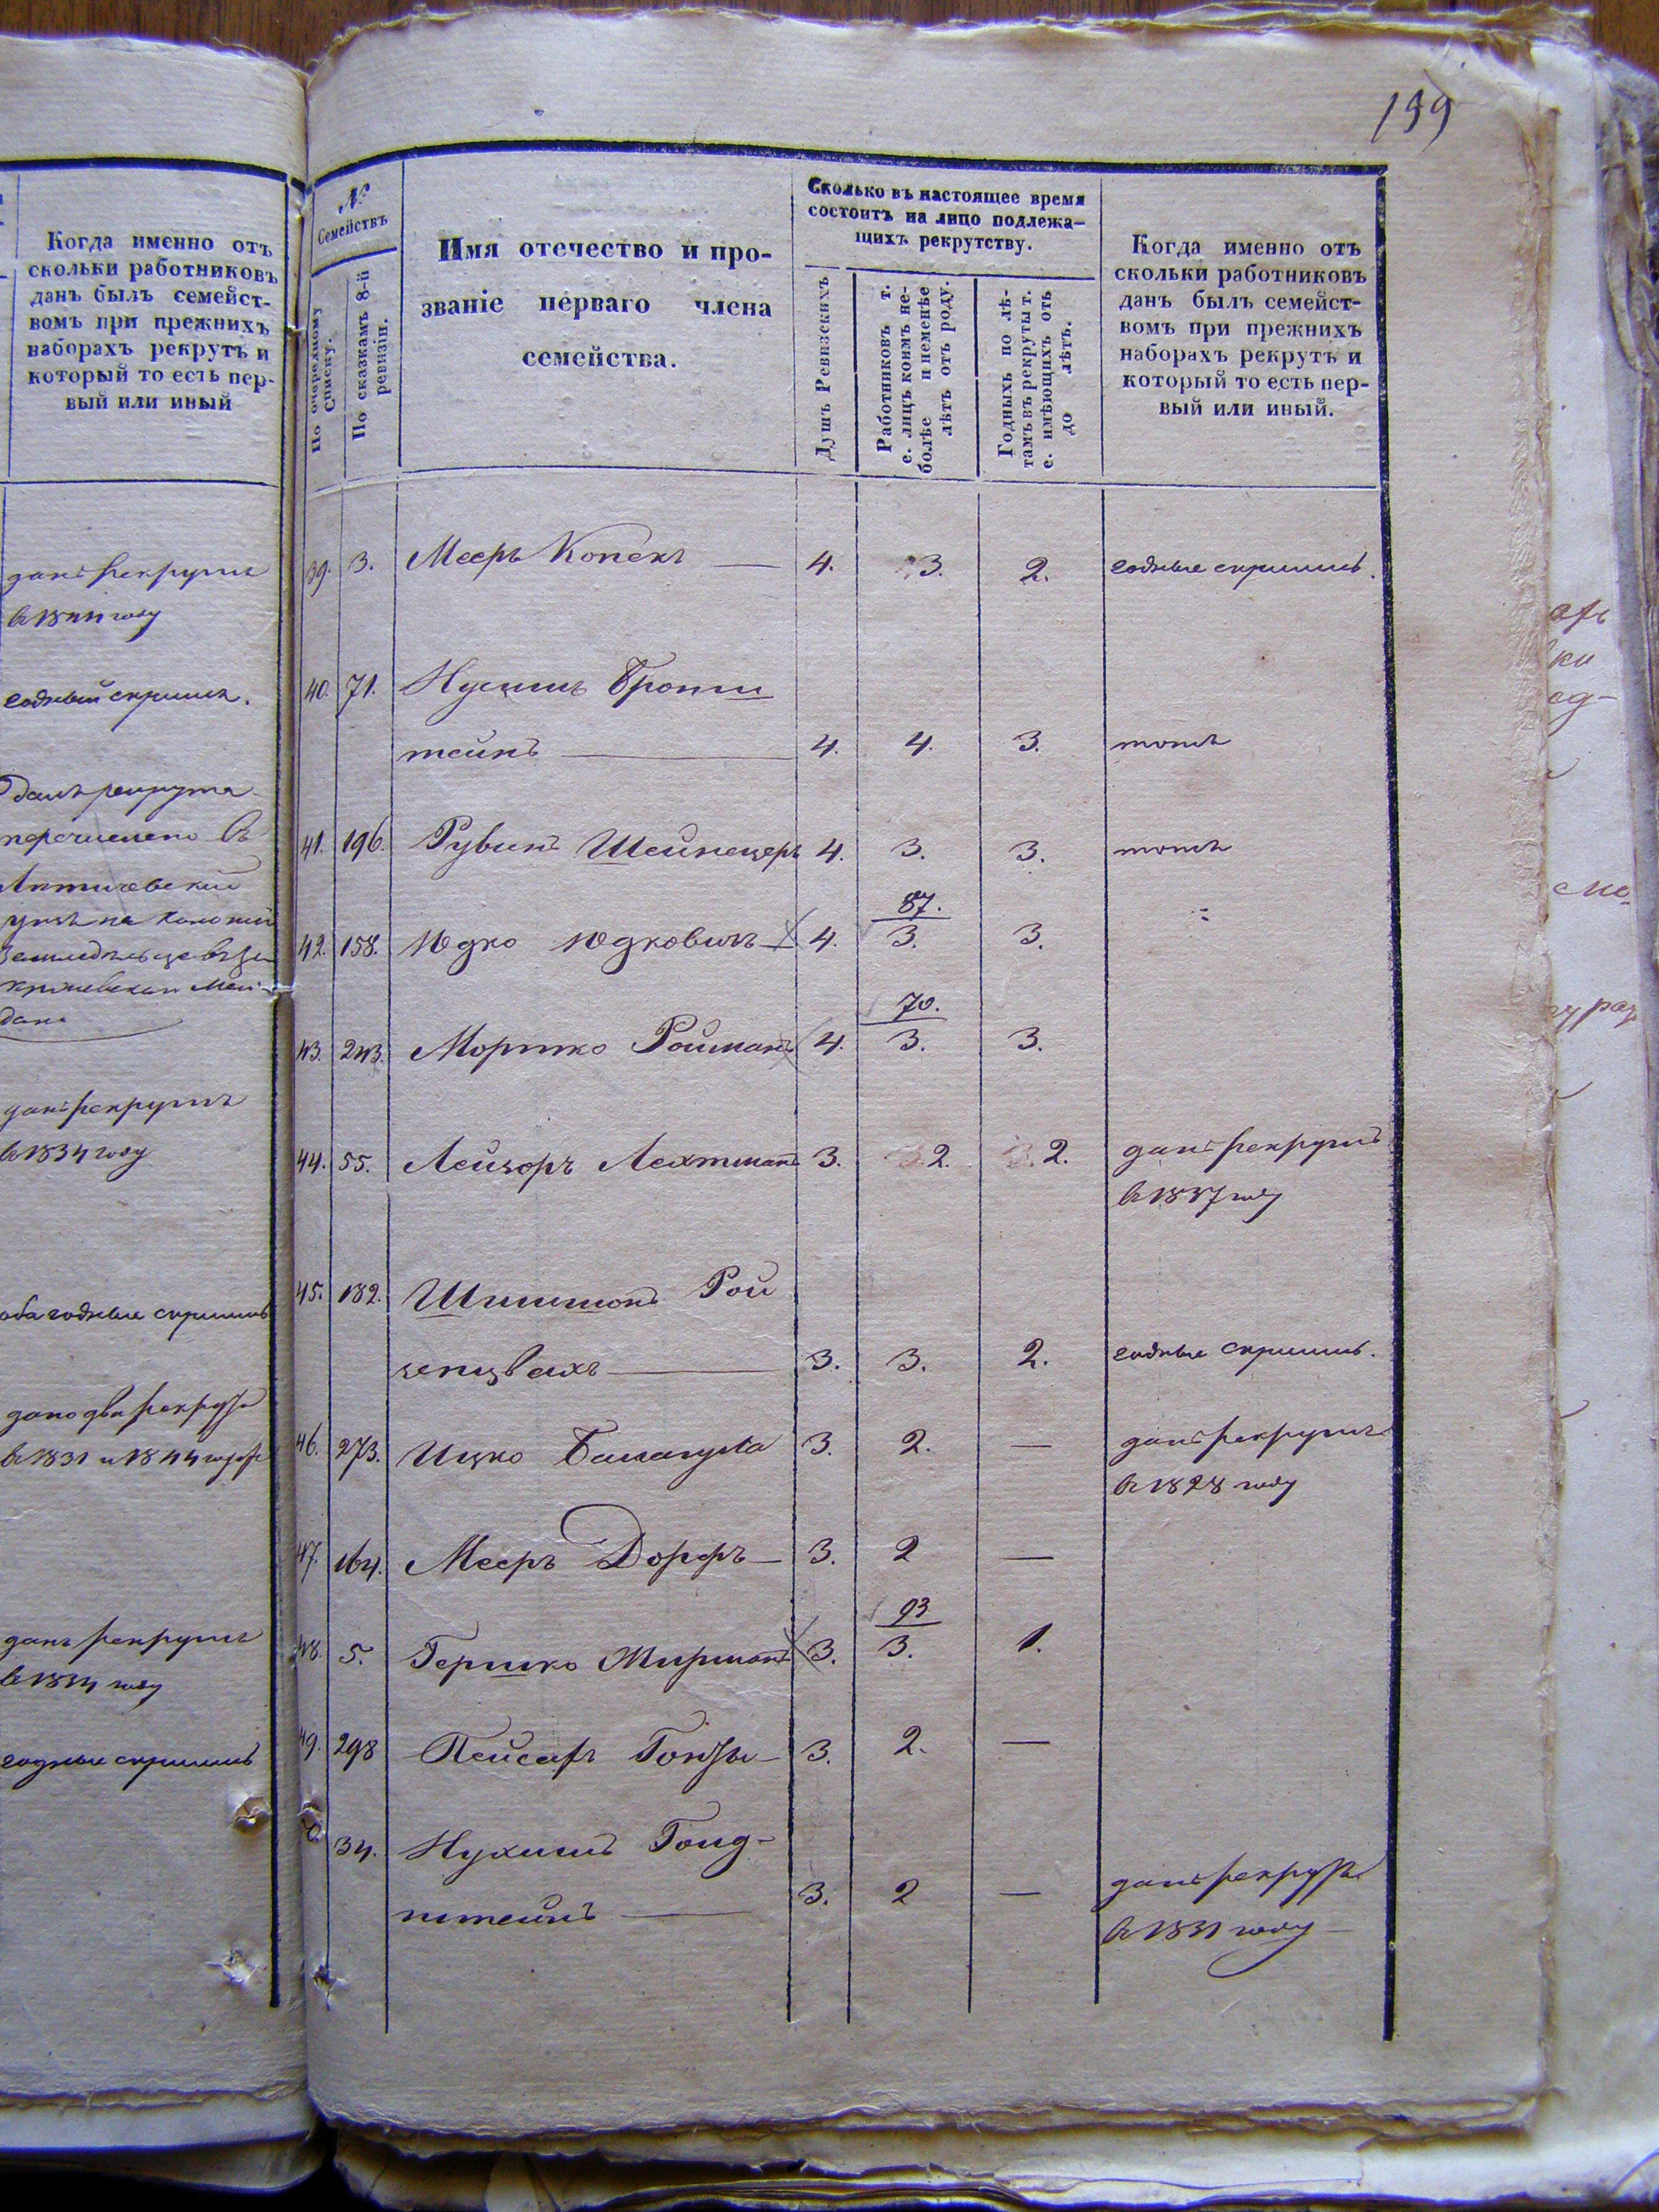 199
Когда именно отъ
скольки работниковъ
данъ былъ семейст-
вомъ при прежнихъ
наборахъ рекрутъ и
который то есть пер-
вый или иный
данъ рекрутъ
въ 1844 году
годный скрылся.
данъ рекрута
перечислено въ
данъ рекрутъ
въ 1834 году
оба годные скрылись
дано два рекрута
въ 1831 и 1844 годах
данъ рекрутъ
годные скрылись
№
Семействъ
По очередному
Списку.
По сказкамъ 8-й
ревизіи.
Имя отечество и про-
званіе перваго члена
семейства.
Сколько въ настоящее время
состоитъ на лицо подлежа-
щихъ рекрутству.
Душъ Ревизскихъ
Работниковъ т.
е. лицъ коимъ не-
болѣе и неменѣе
лѣтъ отъ роду.
Годныхъ по лѣ-
тамъ въ рекруты т.
е. имѣющихъ отъ
до лѣтъ.
Когда именно отъ
скольки работниковъ
данъ былъ семейст-
вомъ при прежнихъ
наборахъ рекрутъ и
который то есть пер-
вый или иный.
39. 3. Мееръ Копекъ — 4. 3. 2. годные скрылись.
40. 71. Нусимъ Бронш
тейнъ — 4. 4. 3. тожъ
41. 196. Рувинъ Шейнецеръ 4. 3. 3. тожъ
87.
42. 158. Юдко Юдковичъ 4. 3. 3.
70.
43. 243. Мошко Ройманъ 4. 3. 3.
44. 55. Лейзоръ Лехтманъ 3. 2. 2. данъ рекрутъ
въ 1837 году
45. 182. Шимшонъ Рой
зенцвахъ — 3. 3. 2. годные скрылись.
46. 273. Ицко Балагула 3. 2. — данъ рекрутъ
въ 1828 году
47. 164. Мееръ Дорфъ — 3. 2 —
93
48. 5. Гершко Мирманъ 3. 3. 1.
49. 298 Пейсахъ 3. 2. —
34. Нухимъ Голд-
штейнъ — 3. 2 — данъ рекрутъ
въ 1831 году